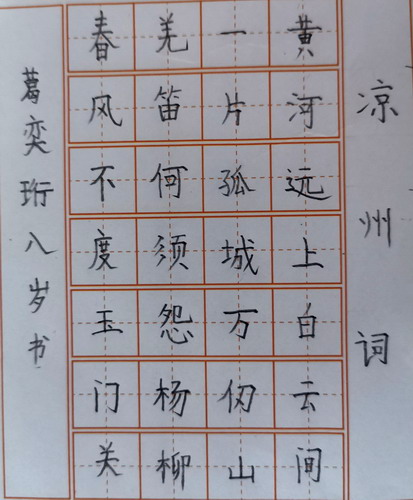 凉州词
黄河远上白云间
一片孤城万仞山
羌笛何须怨杨柳
春风不度玉门关
葛奕珩八岁书